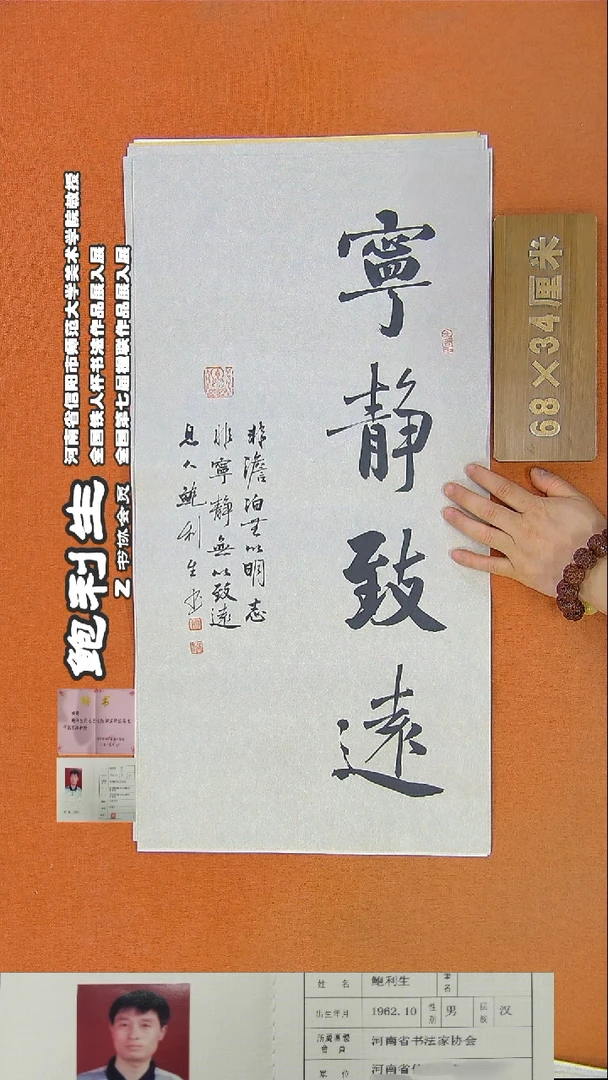 寧靜致遠
非澹泊無以明志
非寧靜無以致遠
息人鮑利生書
68×34厘米
鲍利生
河南省信阳市师范大学美术学院教授
全国
书法作品展入展
全国第七届楹联作品展入展
书协会员
证书
姓 名
鲍利生
笔名
出生年月
1962.10
性别
男
民族
汉
所属团体会员
河南省书法家协会
单 位
河南省